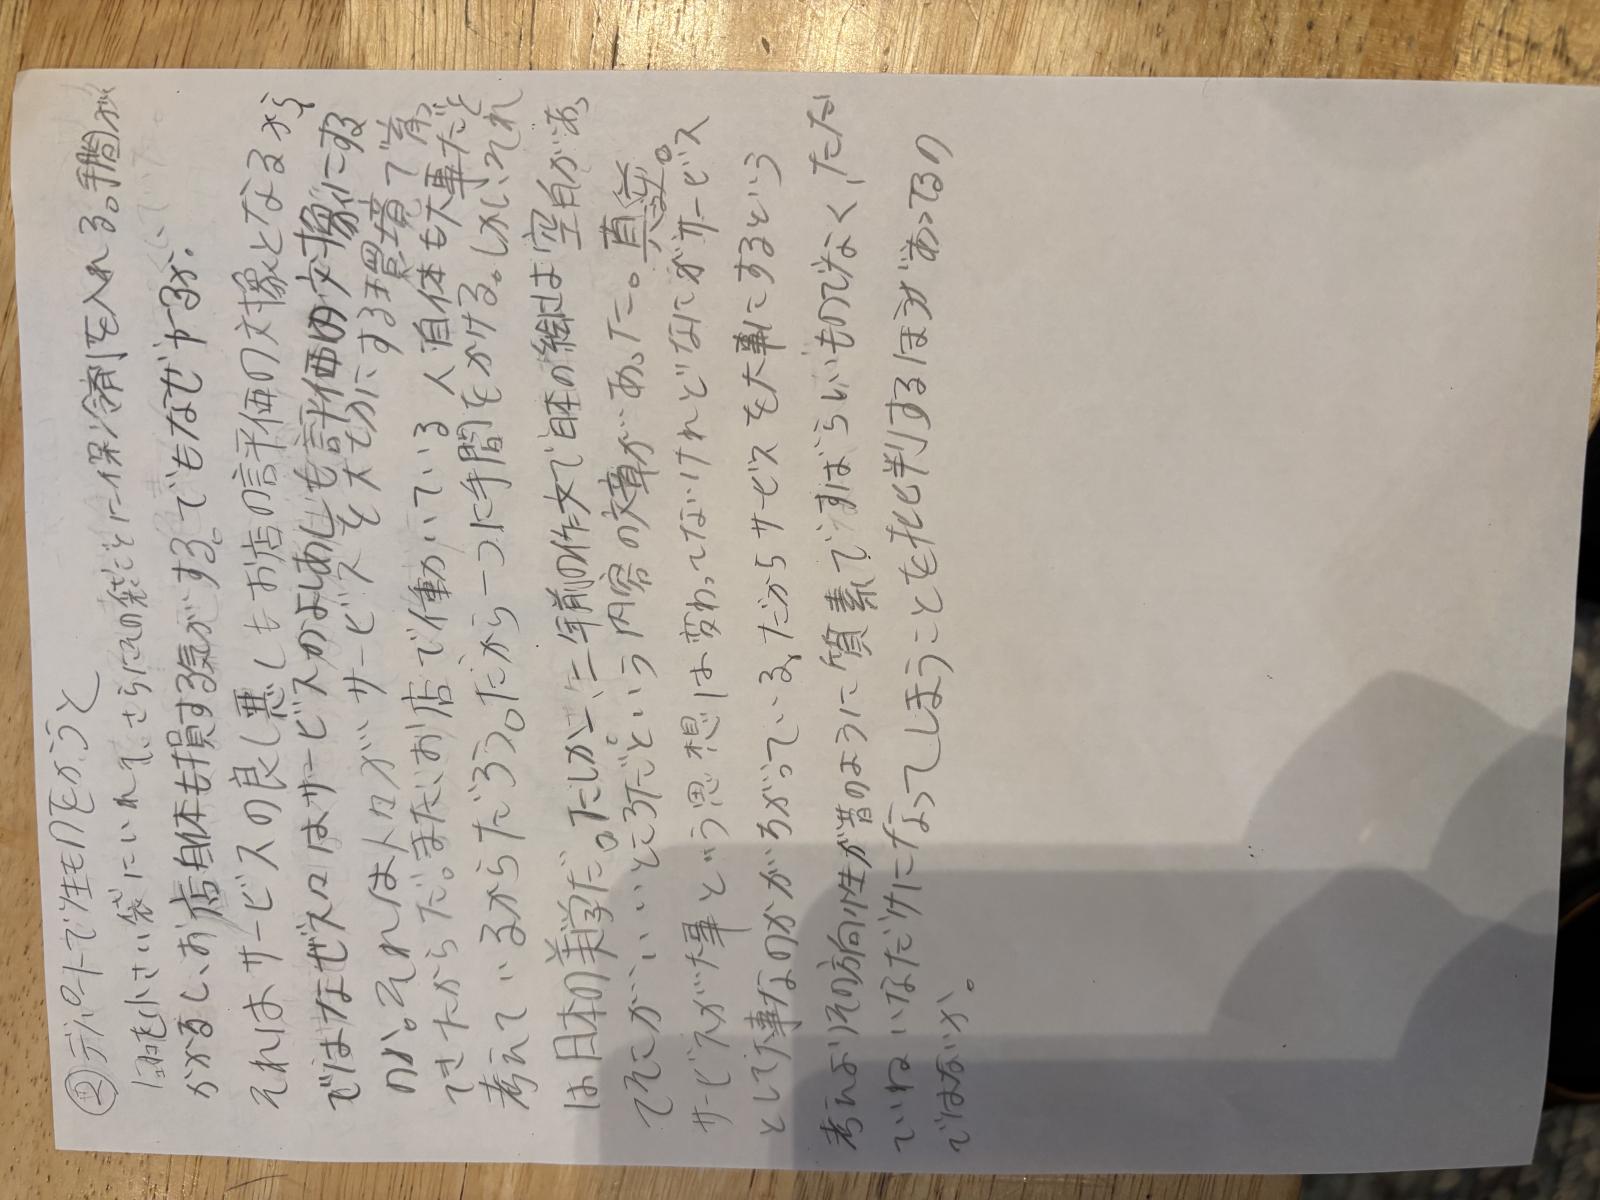 ②デパートで生ものをかうと
はこを小さい袋にいれて、さらにその袋ごとに保冷剤を入れる。手間が
かかるし、お店自体も損する気がする。でもなぜやるか。
それはサービスの良し悪しもお店の評価の対象となるから
ではなぜスロはサービスがよしあしも評価の対象にする
のか。それは人々がサービスを大切にする環境で育っ
てきたからだ。またお店で働いている人自体も大事だと
考えているからだろう。だから一つに手間をかける。しかしそれ
は日本の美学だ。たしか二年前の作文で日本の絵は空白があっ
てそこがいいところだ。という内容の文章があった。真逆。
サービスが大事という思想は変わってないけれどなにがサービス
として大事なのかがちがっている、だからサービスを大事にするという
考えよりその方向性が昔のように質素ですばらしいものでなく、ただ
ていねいなだけになってしまうことを批判するほうがあってるの
ではないか。